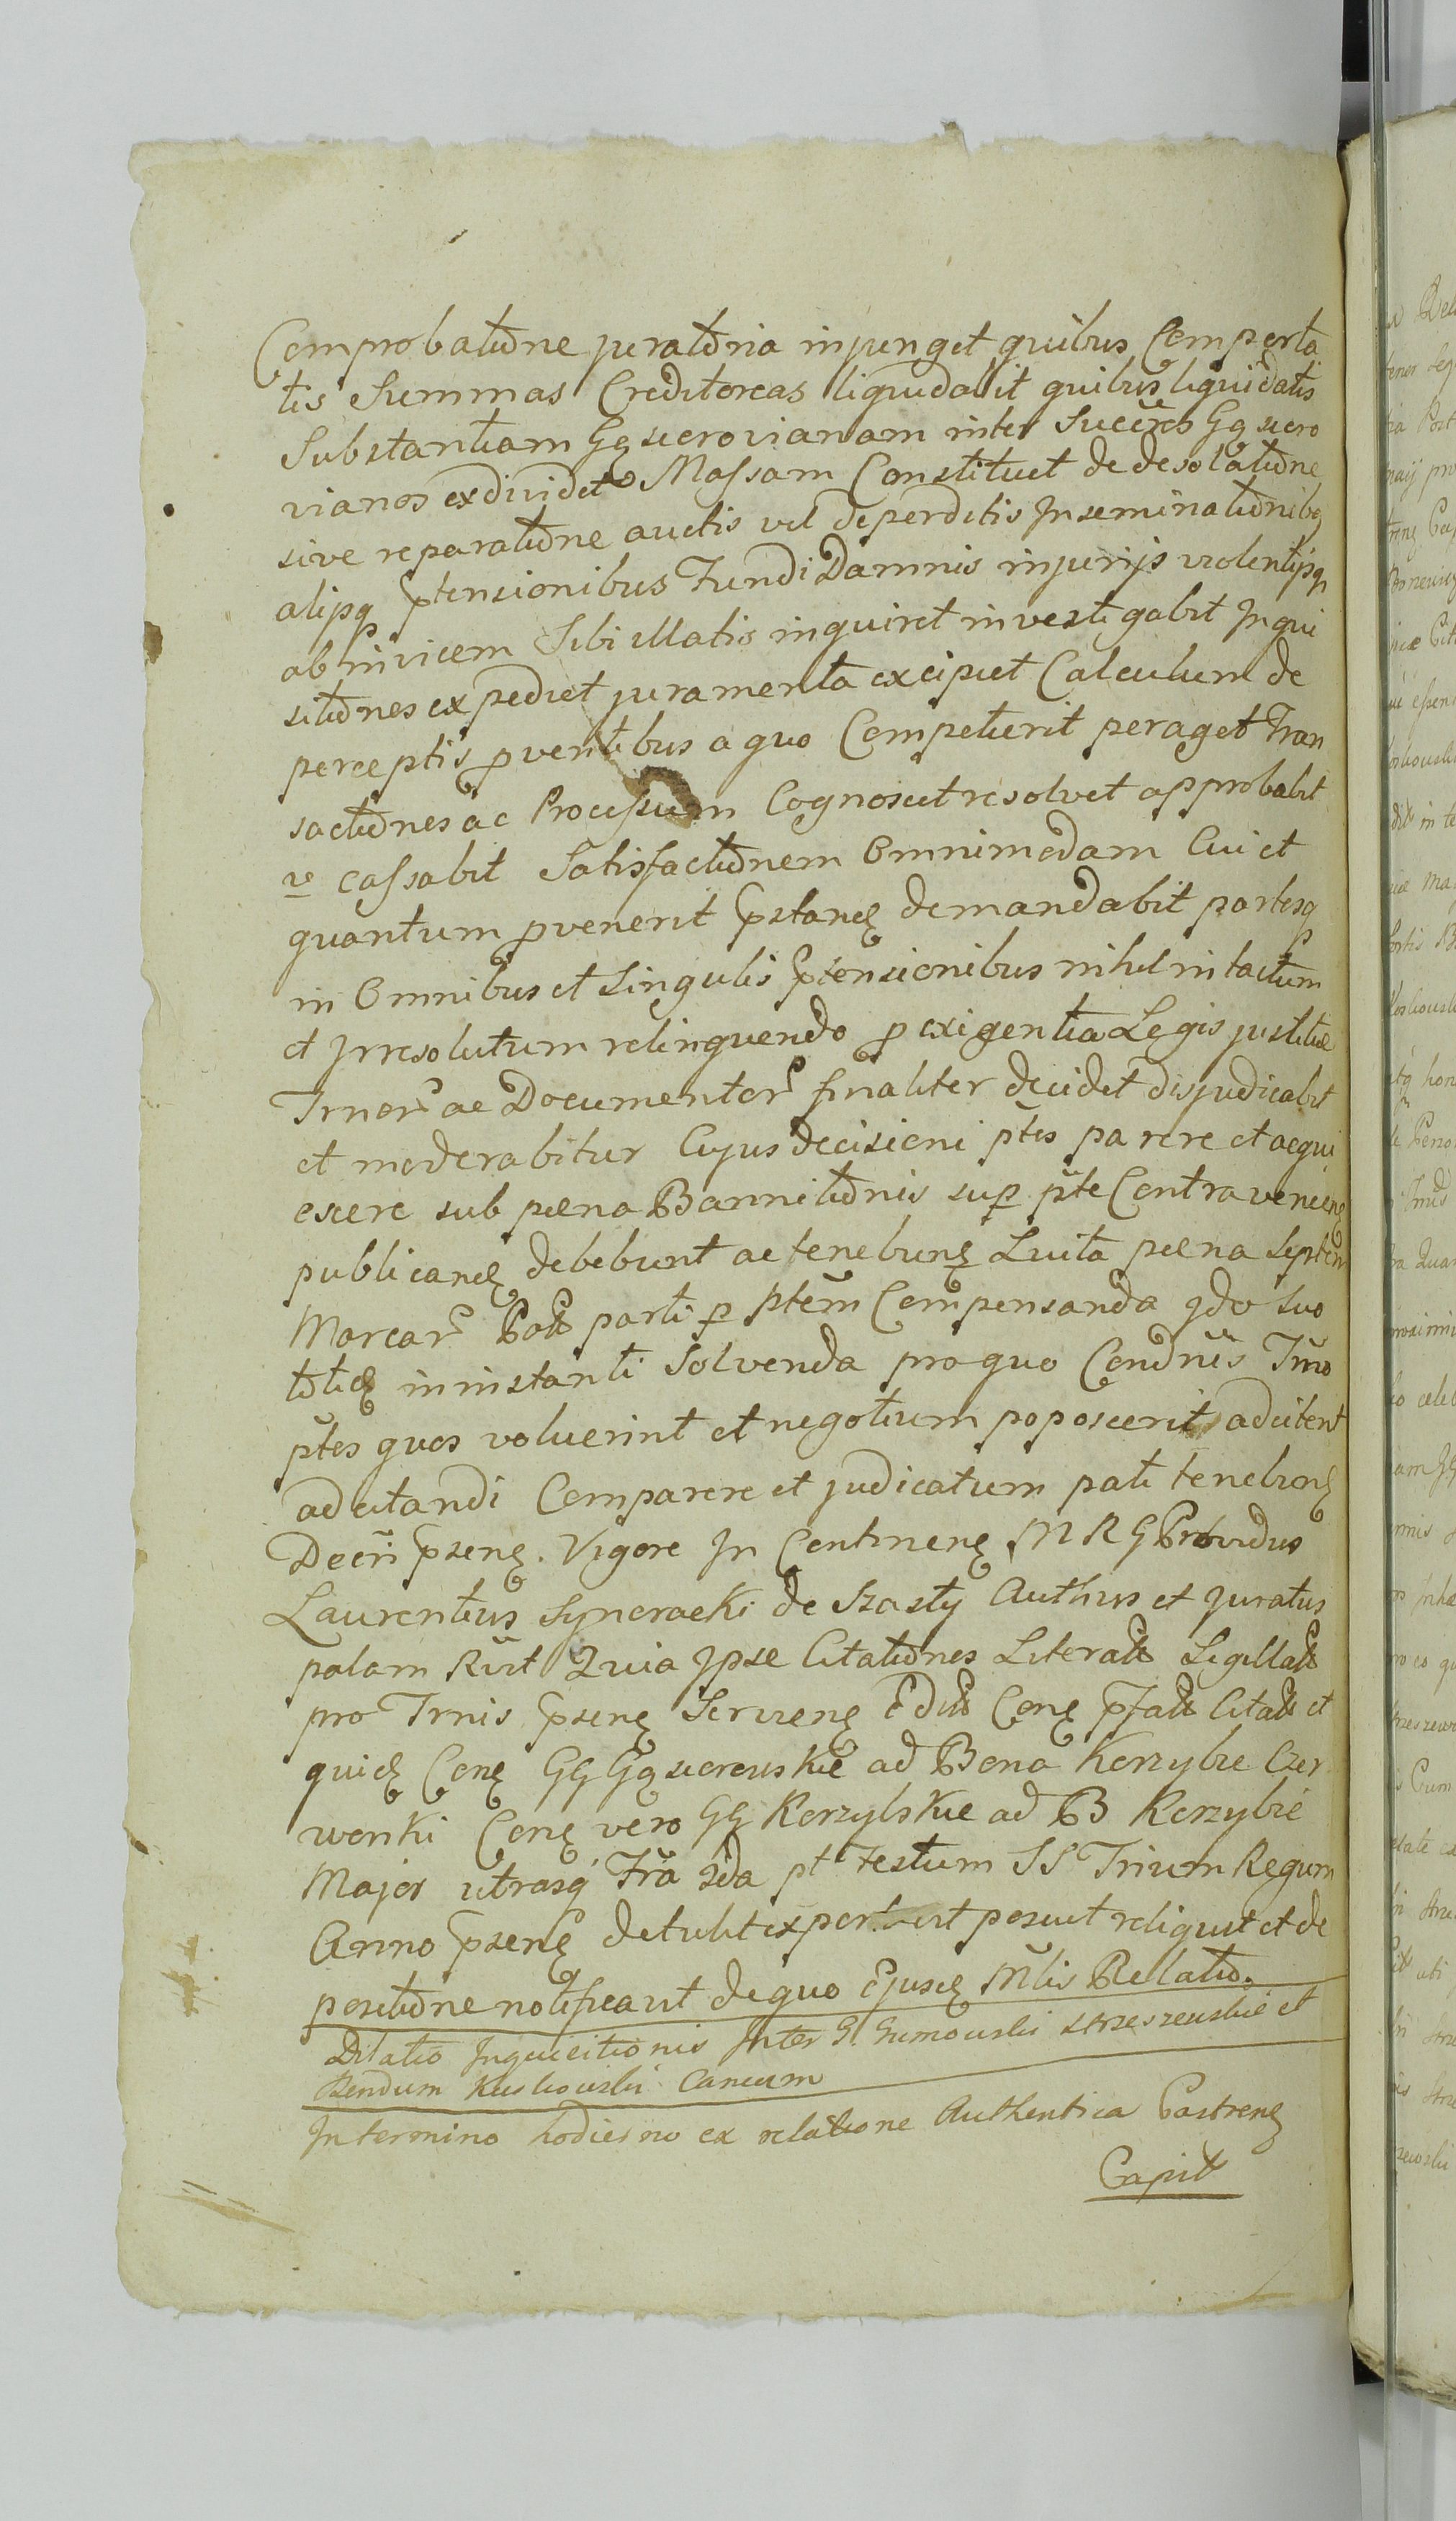 Comprobatione juratoria injunget quibus Comporta
tis Summas Creditoreas liquidabit quibus liquidatis
Substantiam Gąsiorovianam inter Succres Gąsioro
vianos exdividet Massam Constituet de desolatione
sive reparatione auctis vel deperditis Inseminationibq
alijsq ptensionibus Fundi Damnis injurijs violentijsq
ab invicem Sibi illatis inquiret investigabit Inqui
sitiones expediet juramenta excipiet Calculum de
perceptis pventibus a quo Competierit peraget Tran
sactiones ac Processum Cognoscet resolvet approbabit
v cassabit Satisfactionem Omnimodam Cui et
quantum pvenerit pstand demandabit partesq
in Omnibus et Singulis ptensionibus nihil intactum
et Irresolutum relinquendo p exigentia Legis justitiæ
Trnor ac Documentor finaliter decidet disjudicabit
et moderabitur Cujus decisioni ptes parere et acqui
escere sub pæna Bannitionis sup pte Contravenien
publicand debebunt ac tenebunt Luita pæna Septem
Marcar Pol parti p ptem Compensanda qdo suo
toties in instanti Solvenda pro quo Condnis Tmo
ptes quos voluerint et negotium poposcerit adcitent
adcitandi Comparere et judicatum pati tenebunt
Decri psent. Vigore In Continent M R G Providus
Laurentius de Szasty Authus et Juratus
palam Rvit Quia Ipse Citationes Literales Sigillat
pro Trnis psent Servient Cont pfat Citat et
quid Cont GG Gąsiorowskie ad Bona Korzybie Czer
wonki Cont vero GG Korzybskie ad B Korzybie
Major utrasq Fria 2da pt Festum SS Trium Regum
Anno psent detulit exportavit posuit reliquit et de
positione notificavit de quo Ejusd Mlis Rellatio.
Dilatio Inquisitionis Inter G. Gumowski Strzeszewskie et
Rendum Kuskowski Caneum
In termino hodierno ex relatione Authentica Castrens
Capit